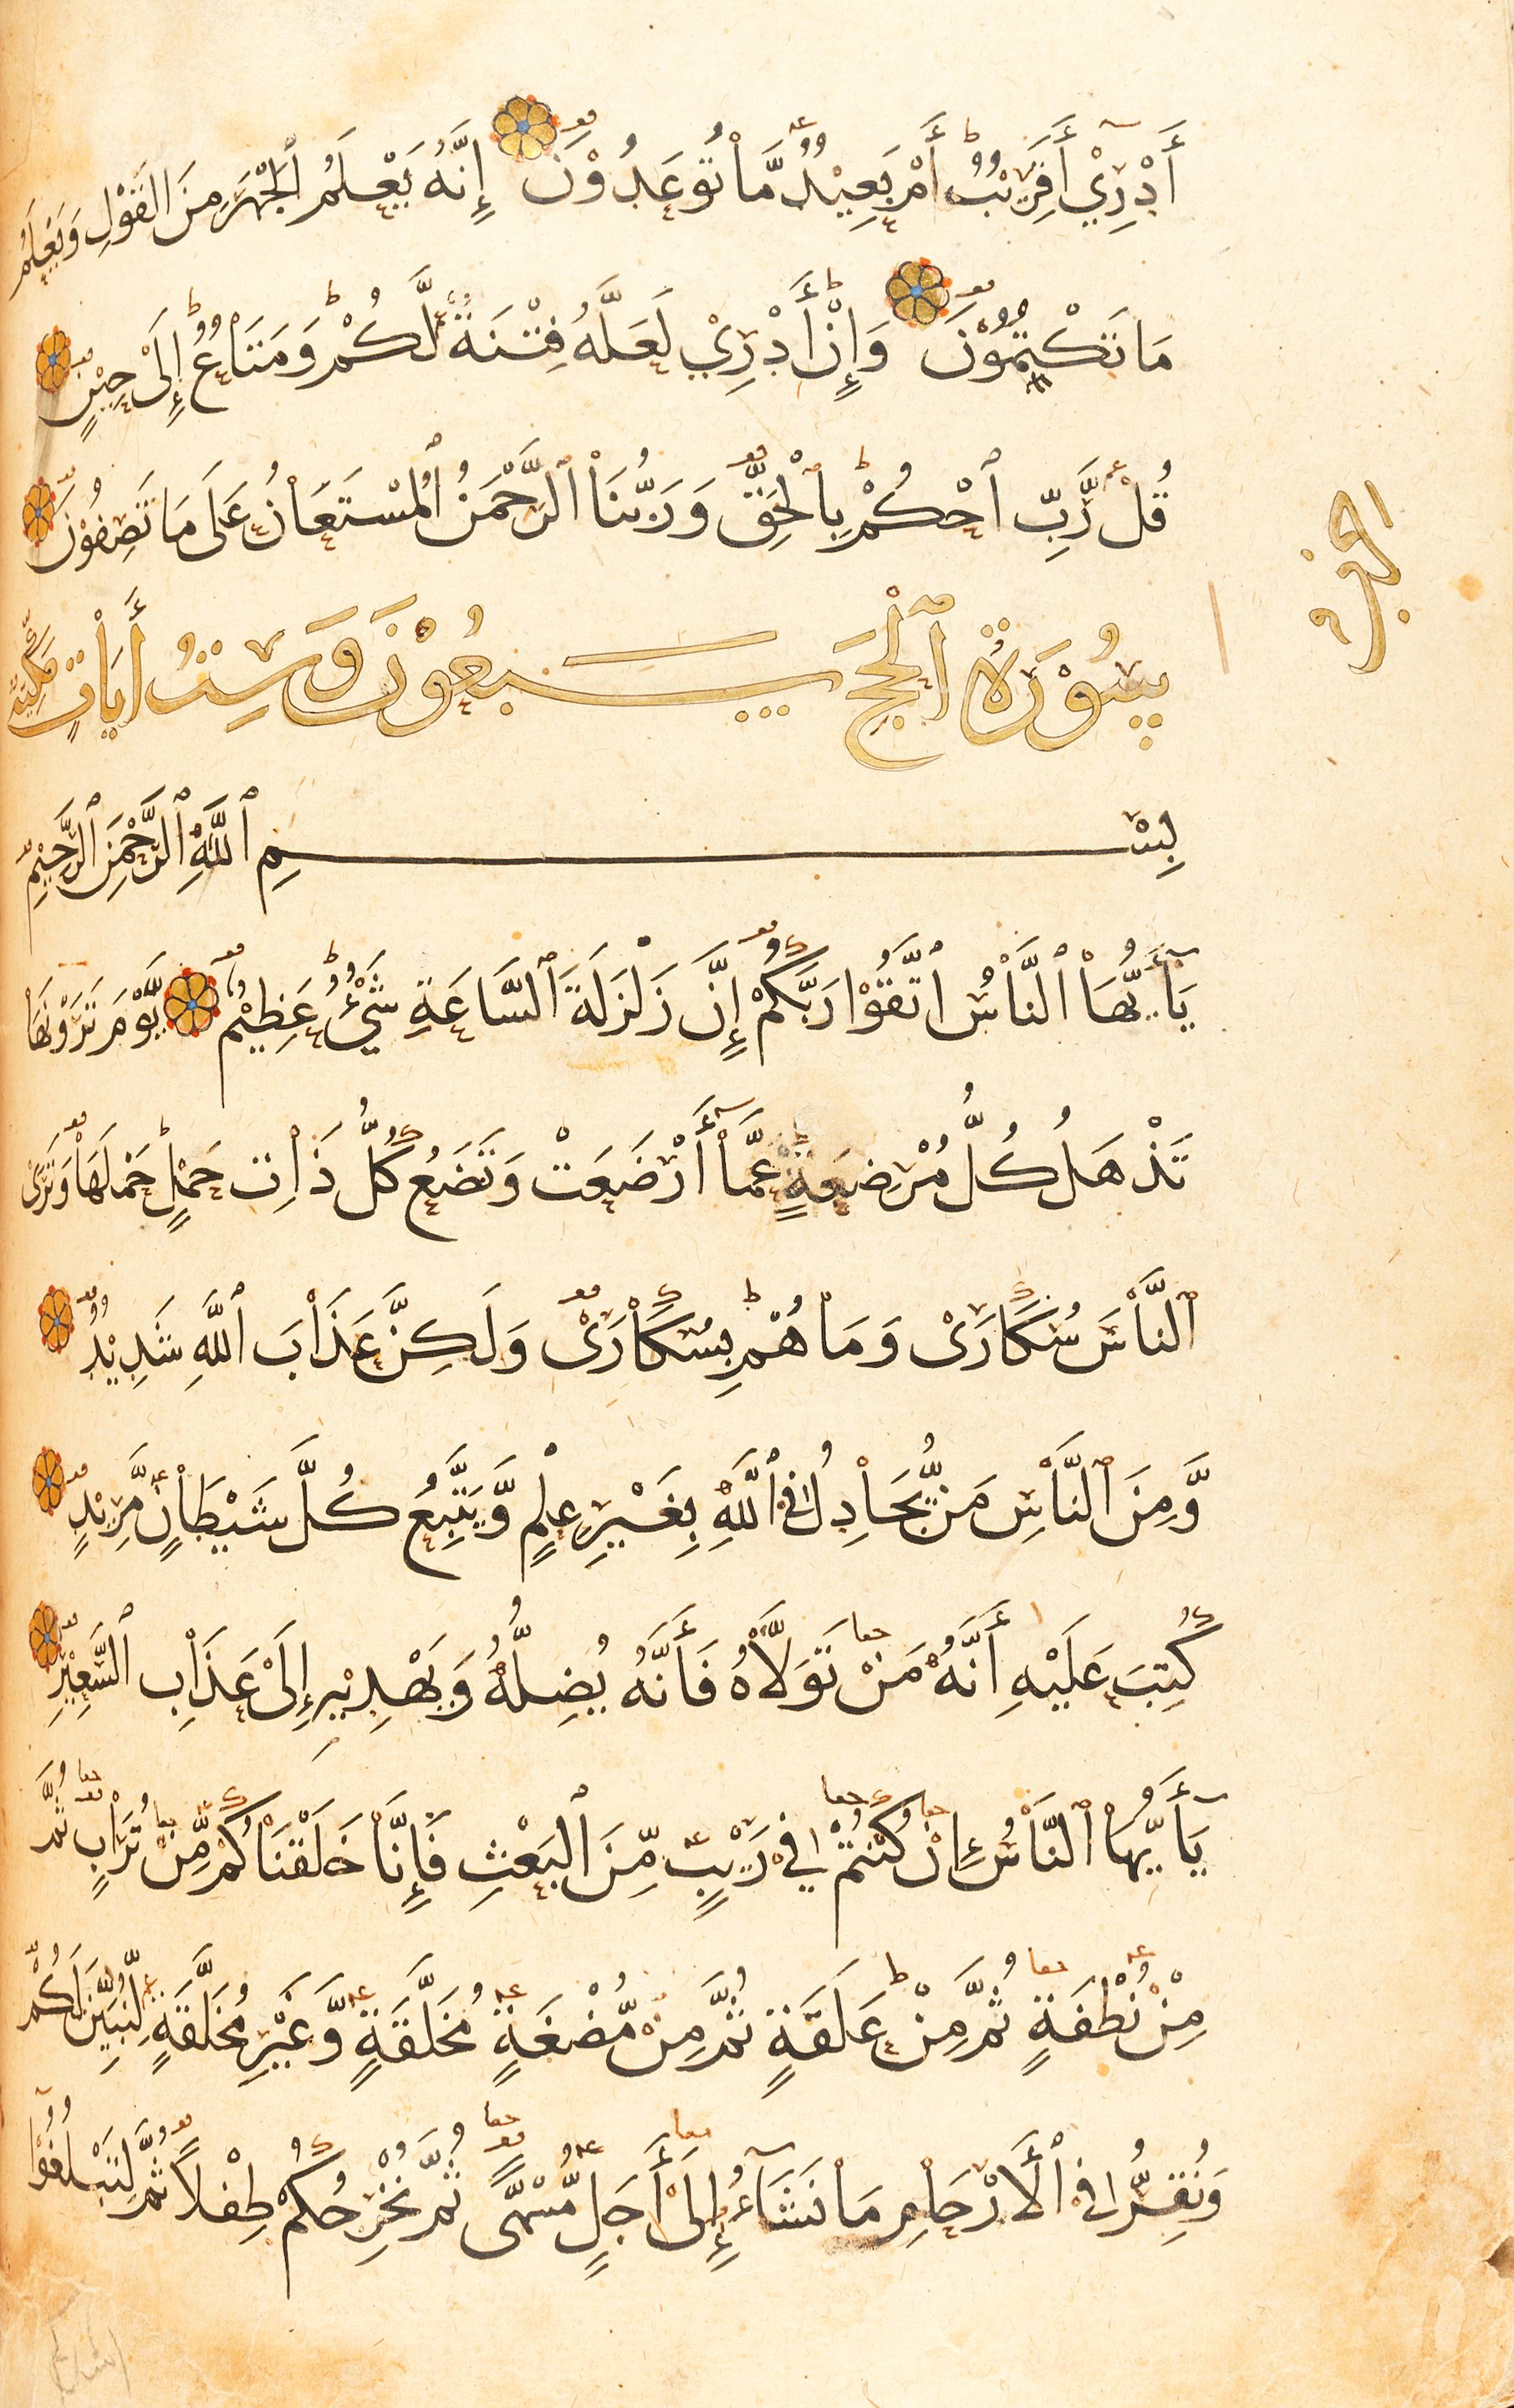 أَدْرِيْ أَقَرِيْبٌ أَمْ بَعِيْدٌ مَّا تُوْعَدُوْنَ إِنَّهُ يَعْلَمُ ٱلْجَهْرَ مِنَ الْقَوْلِ وَيَعْلَمُ
مَا تَكْتُمُوْنَ وَإِنْ أَدْرِيْ لَعَلَّهُ فِتْنَةٌ لَّكُمْ وَمَتَاعٌ إِلَىٰ حِيْنٍ
قُلْ رَّبِّ ٱحْكُمْ بِٱلْحَقِّ وَرَبُّنَا ٱلرَّحْمَنُ ٱلْمُسْتَعَانُ عَلَى مَا تَصِفُوْنَ
سُوْرَةُ ٱلْحَجِّ سَبْعُوْنَ وَسِتُّ أَيَاتٍ مَكِّيَّة
الحزب
بِسْمِ ٱللَّهِ ٱلرَّحْمَنِ ٱلرَّحِيْمِ
يَآأَيُّهَا ٱلنَّاسُ ٱتَّقُوْا رَبَّكُمْ إِنَّ زَلْزَلَةَ ٱلسَّاعَةِ شَيْءٌ عَظِيْمٌ يَّوْمَ تَرَوْنَهَا
تَذْهَلُ كُلُّ مُرْضِعَةٍ عَمَّآ أَرْضَعَتْ وَتَضَعُ كُلُّ ذَاتِ حَمْلٍ حَمْلَهَا وَتَرَى
ٱلنَّاسَ سُكَارَىْ وَمَا هُمْ بِسُكَارَىْ وَلَكِنَّ عَذَابَ ٱللَّهِ شَدِيْدٌ
وَّمِنَ ٱلنَّاسِ مَنْ يُّجَادِلُ فِي ٱللَّهِ بِغَيْرِ عِلْمٍ وَّيَتَّبِعُ كُلَّ شَيْطَانٍ مَّرِيْدٍ
كُتِبَ عَلَيْهِ أَنَّهُ مَنْ تَوَلَّاهُ فَأَنَّهُ يُضِلُّهُ وَيَهْدِيْهِ إِلَىْ عَذَابِ ٱلسَّعِيْرِ
يَآأَيُّهَا ٱلنَّاسُ إِنْ كُنْتُمْ فِيْ رَيْبٍ مِّنَ ٱلْبَعْثِ فَإِنَّا خَلَقْنَاكُمْ مِّنْ تُرَابٍ ثُمَّ
مِنْ نُّطْفَةٍ ثُمَّ مِنْ عَلَقَةٍ ثُمَّ مِنْ مُّضْغَةٍ مُّخَلَّقَةٍ وَّغَيْرِ مُخَلَّقَةٍ لِّنُبَيِّنَ لَكُمْ
وَنُقِرُّ فِي ٱلْأَرْحَامِ مَا نَشَآءُ إِلَىْ أَجَلٍ مُّسَمًّى ثُمَّ نُخْرِجُكُمْ طِفْلًا ثُمَّ لِتَبْلُغُوْآ